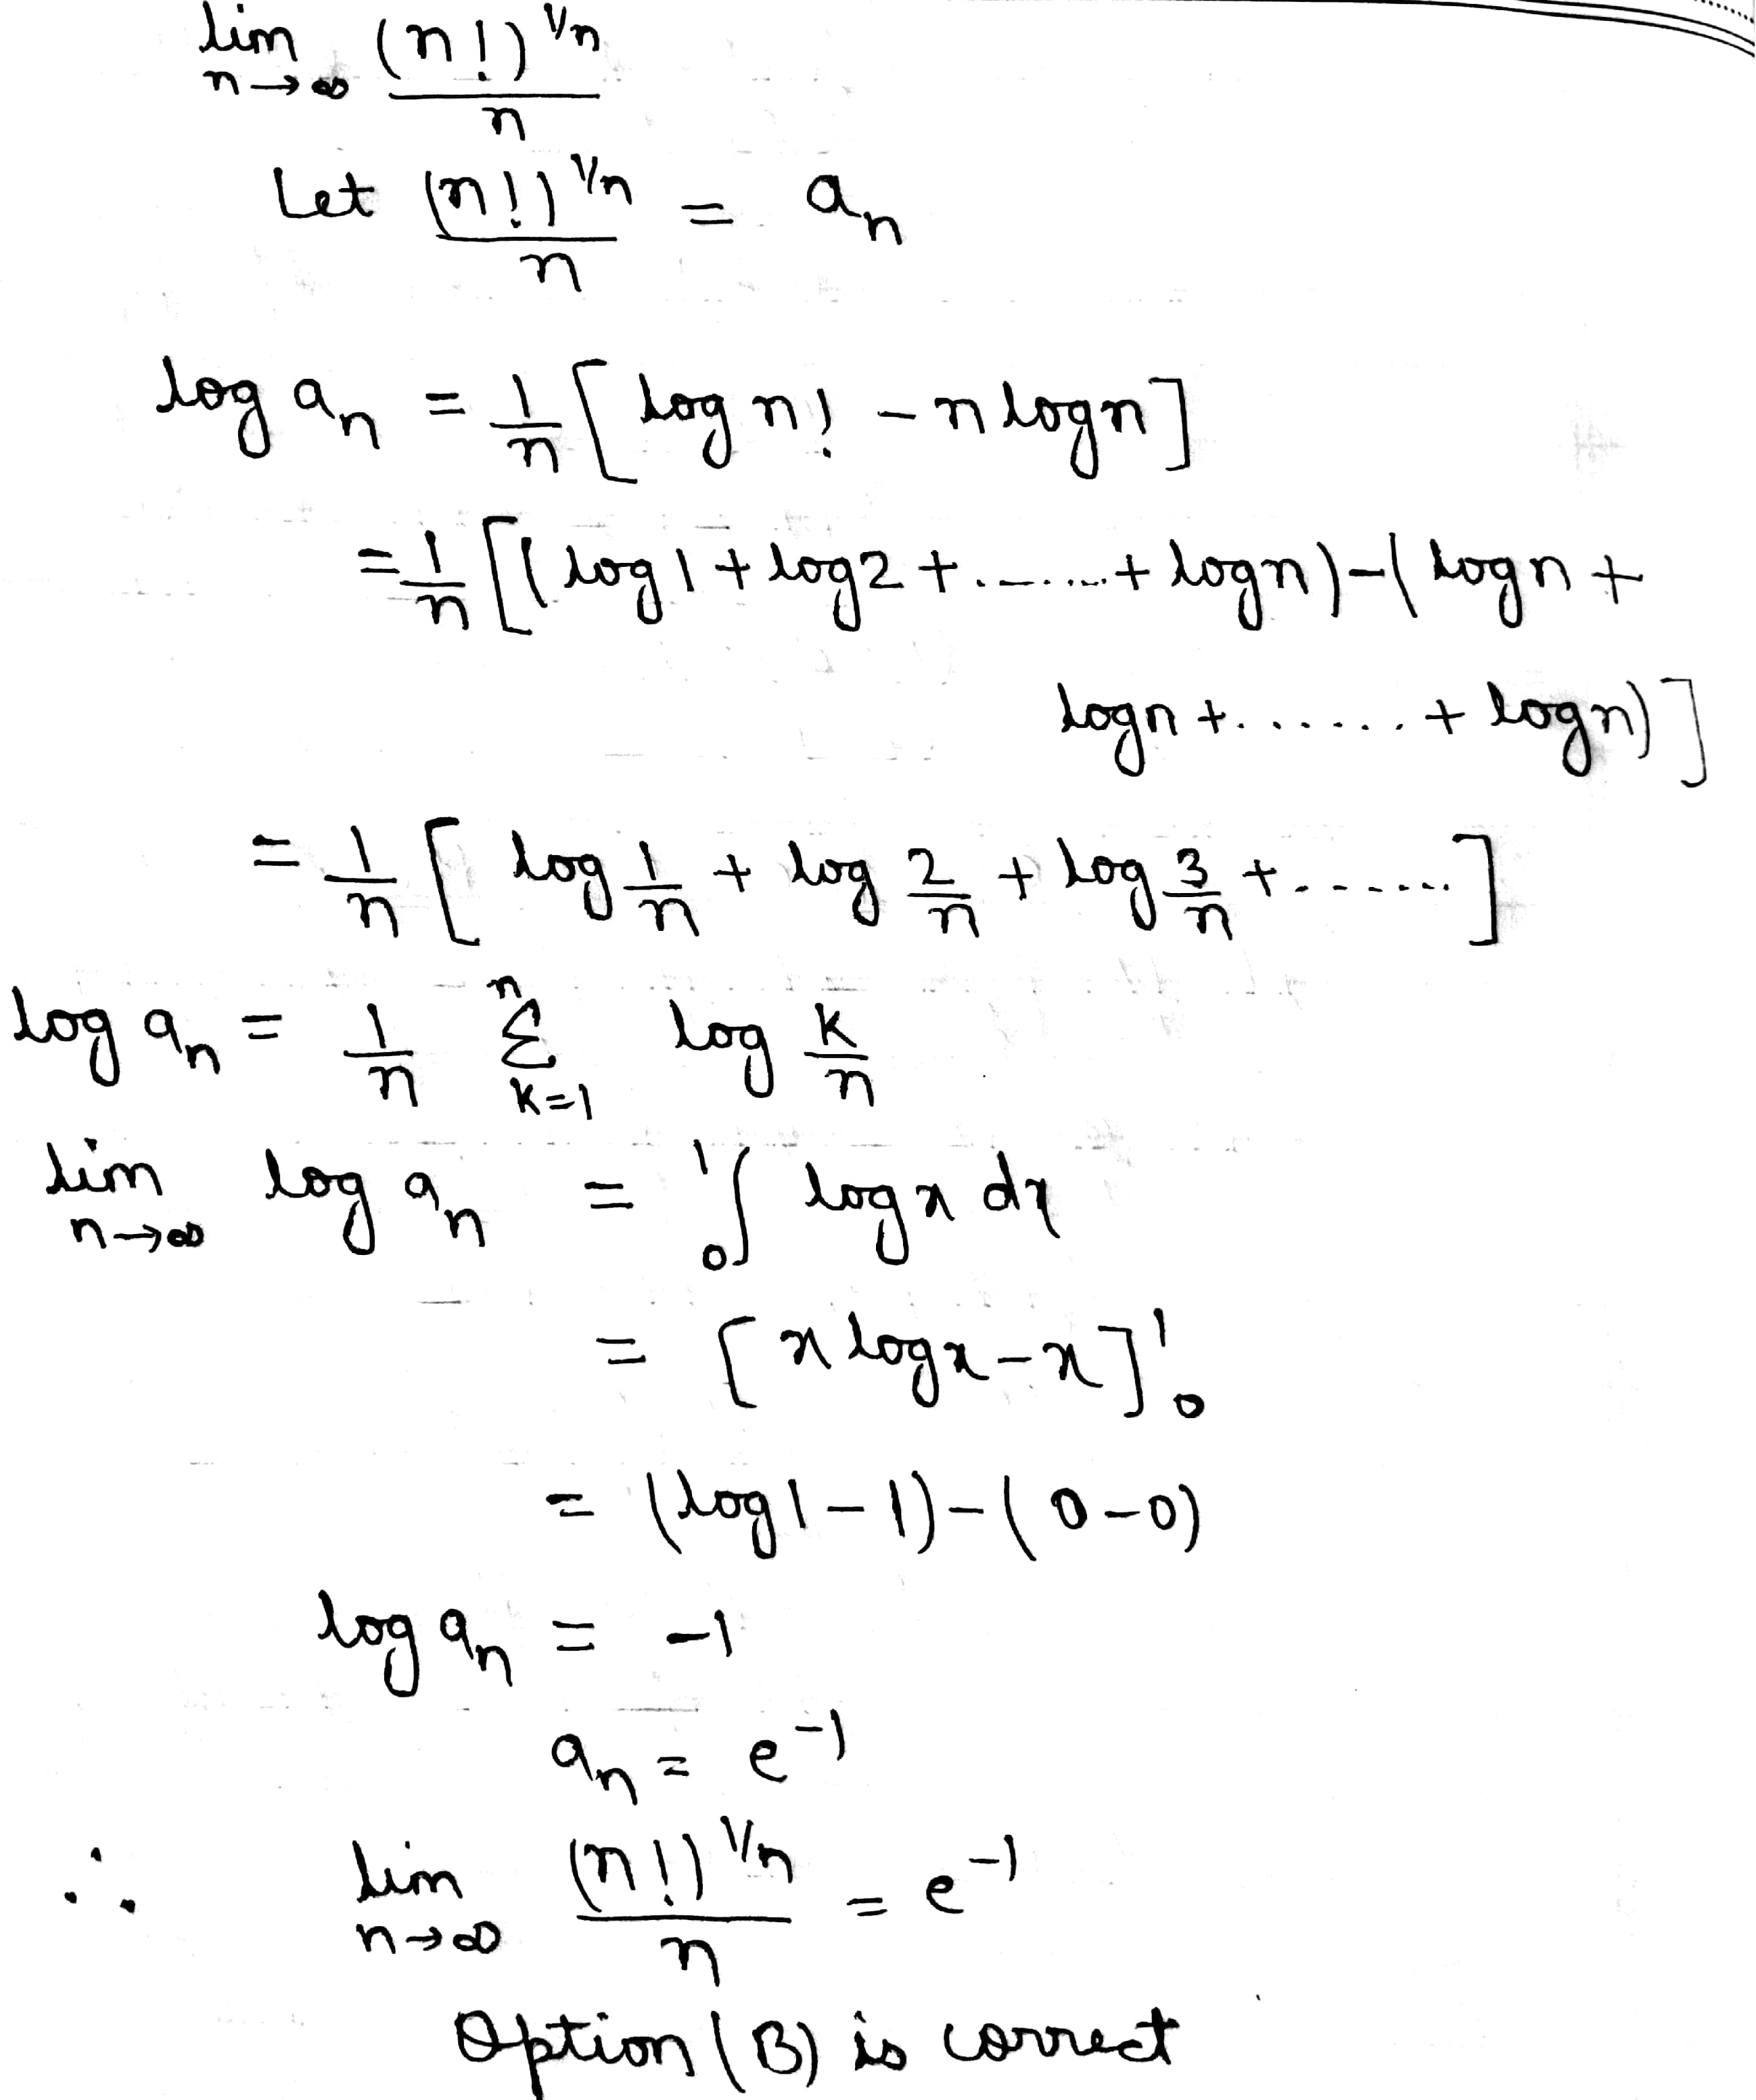 lim n→∞ (n!)^{1/n} / n
Let (n!)^{1/n} / n = a_n
log a_n = 1/n [ log n! - n log n ]
= 1/n [ ( log 1 + log 2 + ....... + log n ) - ( log n +
log n + ....... + log n ) ]
= 1/n [ log 1/n + log 2/n + log 3/n + ....... ]
log a_n = 1/n Σ_{k=1}^{n} log k/n
lim n→∞ log a_n = ∫_0^1 log x dx
= [ x log x - x ]_0^1
= (log 1 - 1) - (0 - 0)
log a_n = -1
a_n = e^{-1}
∴ lim n→∞ (n!)^{1/n} / n = e^{-1}
Option (B) is correct